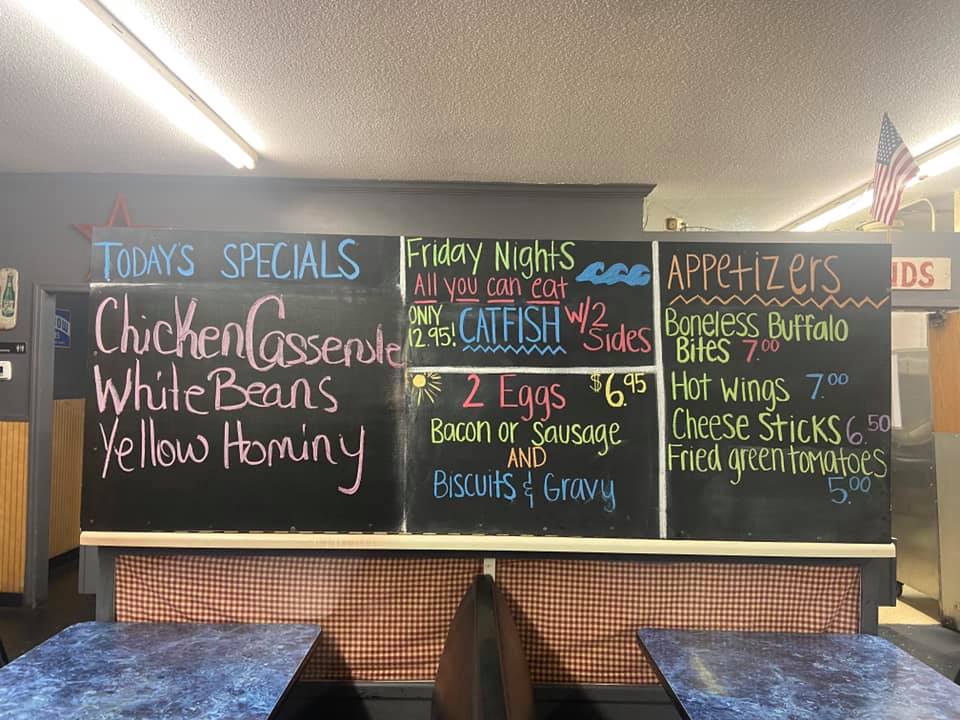 TODAY'S SPECIALS
Chicken Casserole
White Beans
Yellow Hominy
Friday Nights
All you can eat
ONLY
12.95!
CATFISH
W/2
Sides
2 Eggs
$6.95
Bacon or Sausage
AND
Biscuits & Gravy
APPetizers
Boneless Buffalo
Bites 7.00
Hot wings 7.00
Cheese Sticks 6.50
Fried green tomatoes
5.00
NDS